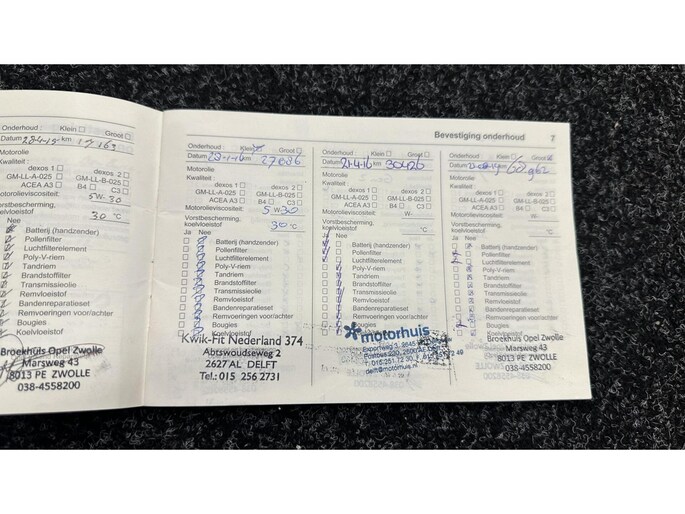 Bevestiging onderhoud 7
Onderhoud : Klein Groot
Datum 28-4-15 km 17163
Motorolie
Kwaliteit :
dexos 1 dexos 2
GM-LL-A-025 GM-LL-B-025
ACEA A3 B4 C3
Motorolieviscositeit: 5W-30
Vorstbescherming,
koelvloeistof 30 °C
Nee
Batterij (handzender)
Pollenfilter
Luchtfilterelement
Poly-V-riem
Tandriem
Brandstoffilter
Transmissieolie
Remvloeistof
Bandenreparatieset
Remvoeringen voor/achter
Bougies
Koelvloeistof
Broekhuis Opel Zwolle
Marsweg 43
8013 PE ZWOLLE
038-4558200
Onderhoud : Klein Groot
Datum km 27886
Motorolie
Kwaliteit :
dexos 1 dexos 2
GM-LL-A-025 GM-LL-B-025
ACEA A3 B4 C3
Motorolieviscositeit: 5W30
Vorstbescherming,
koelvloeistof 30 °C
Ja Nee
Batterij (handzender)
Pollenfilter
Luchtfilterelement
Poly-V-riem
Tandriem
Brandstoffilter
Transmissieolie
Remvloeistof
Bandenreparatieset
Remvoeringen voor/achter
Bougies
Kwik-Fit Nederland 374
Abtswoudseweg 2
2627 AL DELFT
Tel.: 015 256 2731
Onderhoud : Klein Groot
Datum 21-4-16 km 30426
Motorolie
Kwaliteit :
dexos 1 dexos 2
GM-LL-A-025 GM-LL-B-025
ACEA A3 B4 C3
Motorolieviscositeit: W-
Vorstbescherming,
koelvloeistof °C
Ja Nee
Batterij (handzender)
Pollenfilter
Luchtfilterelement
Poly-V-riem
Tandriem
Brandstoffilter
Transmissieolie
Remvloeistof
Bandenreparatieset
Remvoeringen voor/achter
Bougies
motorhuis
delft@motorhuis.nl
Onderhoud : Klein Groot
Datum km
Motorolie
Kwaliteit :
dexos 1 dexos 2
GM-LL-A-025 GM-LL-B-025
ACEA A3 B4 C3
Motorolieviscositeit: W-
Vorstbescherming,
koelvloeistof °C
Ja Nee
Batterij (handzender)
Pollenfilter
Luchtfilterelement
Poly-V-riem
Tandriem
Brandstoffilter
Transmissieolie
Remvloeistof
Bandenreparatieset
Remvoeringen voor/achter
Bougies
Koelvloeistof
Broekhuis Opel Zwolle
Marsweg 43
8013 PE ZWOLLE
038-4558200